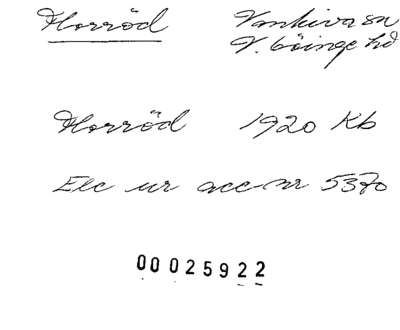 Horröd Vankiva sn
V. Göinge hd
Horröd 1920 Kb
Elc ur acc-nr 5370
00025922